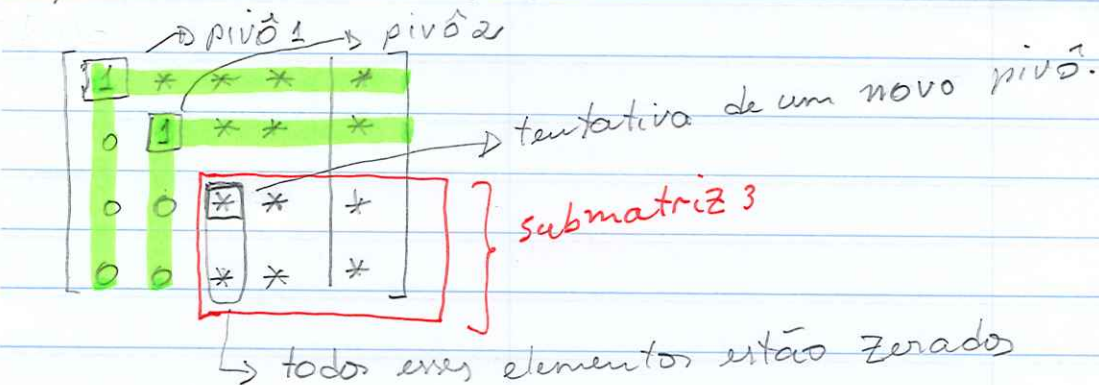 pivô 1 pivô 2
1 * * * *
0 1 * * *
tentativa de um novo pivô.
0 0 * * *
submatriz 3
0 0 * * *
todos esses elementos estão zerados